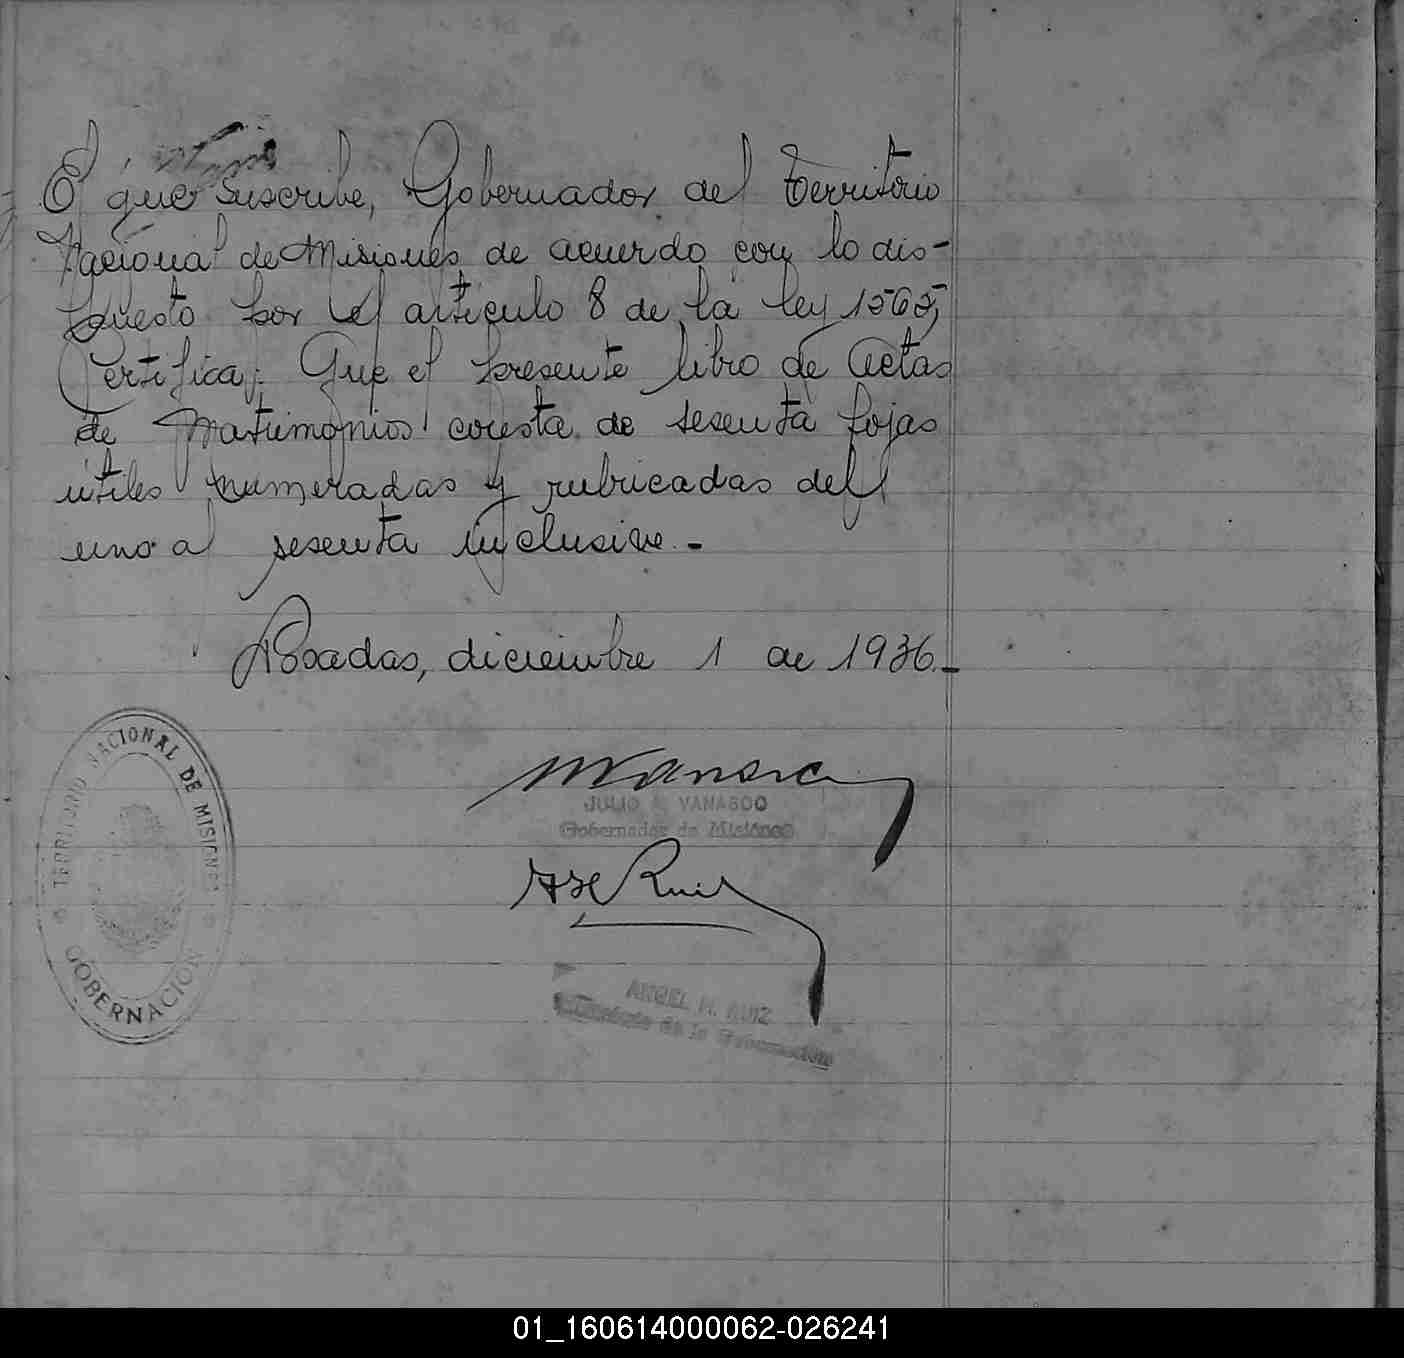 El que suscribe, Gobernador del Territorio
Nacional de Misiones de acuerdo con lo dis-
puesto por el artículo 8 de la ley 1565,
Certifica: Que el presente libro de Actas
de Matrimonios consta de sesenta fojas
útiles numeradas y rubricadas del
uno al sesenta inclusive.-
Posadas, diciembre 1 de 1936.-
TERRITORIO NACIONAL DE MISIONES
GOBERNACION
JULIO VANASCO
Gobernador de Misiones
Ruiz
ANGEL M. RUIZ
de la Gobernación
01_160614000062-026241